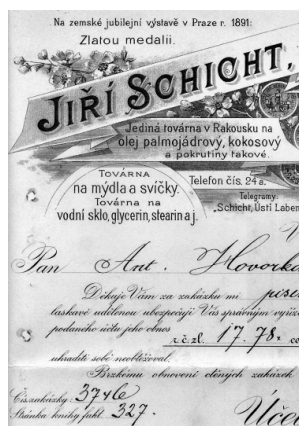 Na zemské jubilejní výstavě v Praze r. 1891:
Zlatou medalii.
JIŘÍ SCHICHT,
Jediná továrna v Rakousku na
olej palmojádrový, kokosový
a pokrutiny takové.
TOVÁRNA
na mýdla a svíčky.
Továrna na
vodní sklo, glycerin, stearin a j.
Telefon čís. 24 a.
Telegramy:
„Schicht, Ústí Labem
Pan Ant. Hovorka
Děkuje Vám za zakázku mi
laskavě udělenou ubezpečuji Vás správným vyříz
podaného účtu jeho obnos
r. č. zl. 17.78. c
uhraditi sobě neobtěžoval.
Brzkému obnovení ctěných zakázek
Čís. zakázky: 3746
Stránka knihy fakt. 327.
Účet